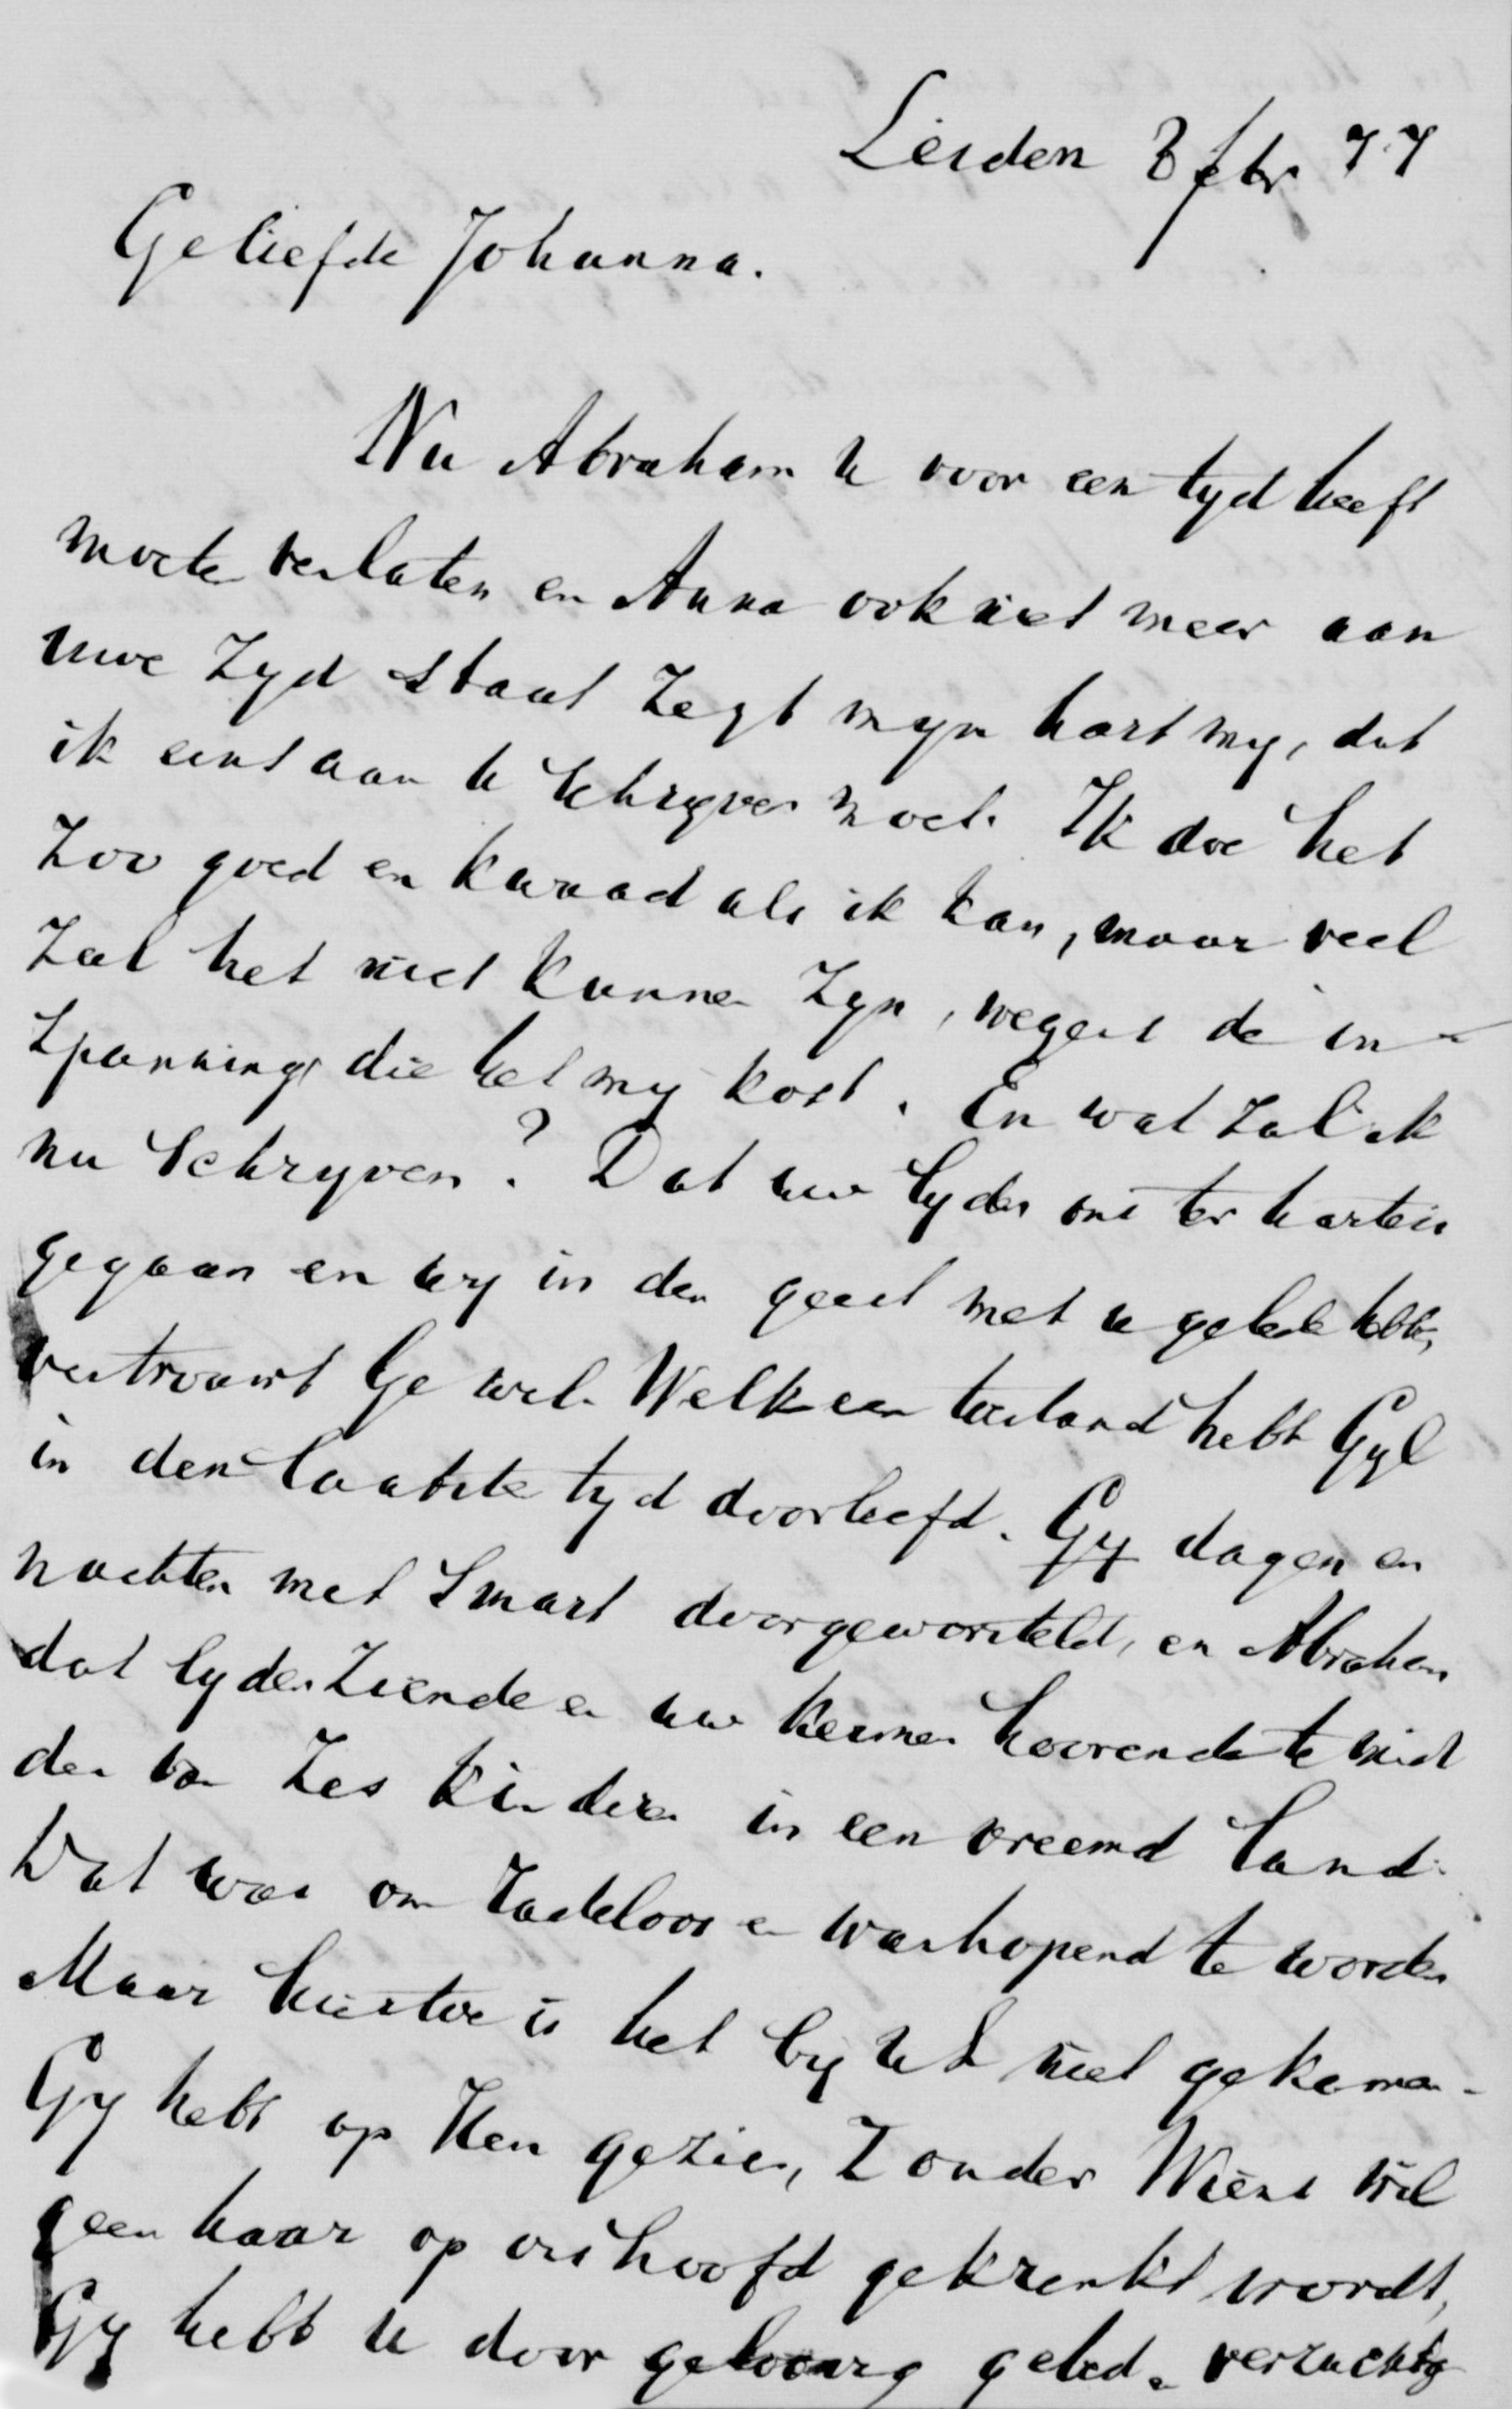 Leiden 8 febr 77
Geliefde Johanna.
Nu Abraham U voor een tyd heeft
moeten verlaten en Anna ook niet meer aan
uwe zyd staat zegt myn hart my, dat
ik eens aan U schryven moet. Ik doe het
zoo goed en kwaad als ik kan, maar veel
zal het niet kunnen zyn, wegens de in-
spanning die het my kost. En wat zal ik
nu schryven? Dat uw lyden ons ter harte is
gegaan en wy in den geest met u geleden hebben,
vertrouwt Ge wel. Welk een toestand hebt Gyl
in den laatste tyd doorleefd. Gy dagen en
nachten met smart doorgeworsteld, en Abraham
dat lyden ziende en uw kermen hoorende te mid
den van zes kinderen in een vreemd land.
Dat was om radeloos en wanhopend te worden
Maar hiertoe is het by U niet gekomen.
Gy hebt op Hem gezien, zonder Wiens wil
geen haar op ons hoofd gekrenkt wordt,
Gy hebt U door geloovig gebed